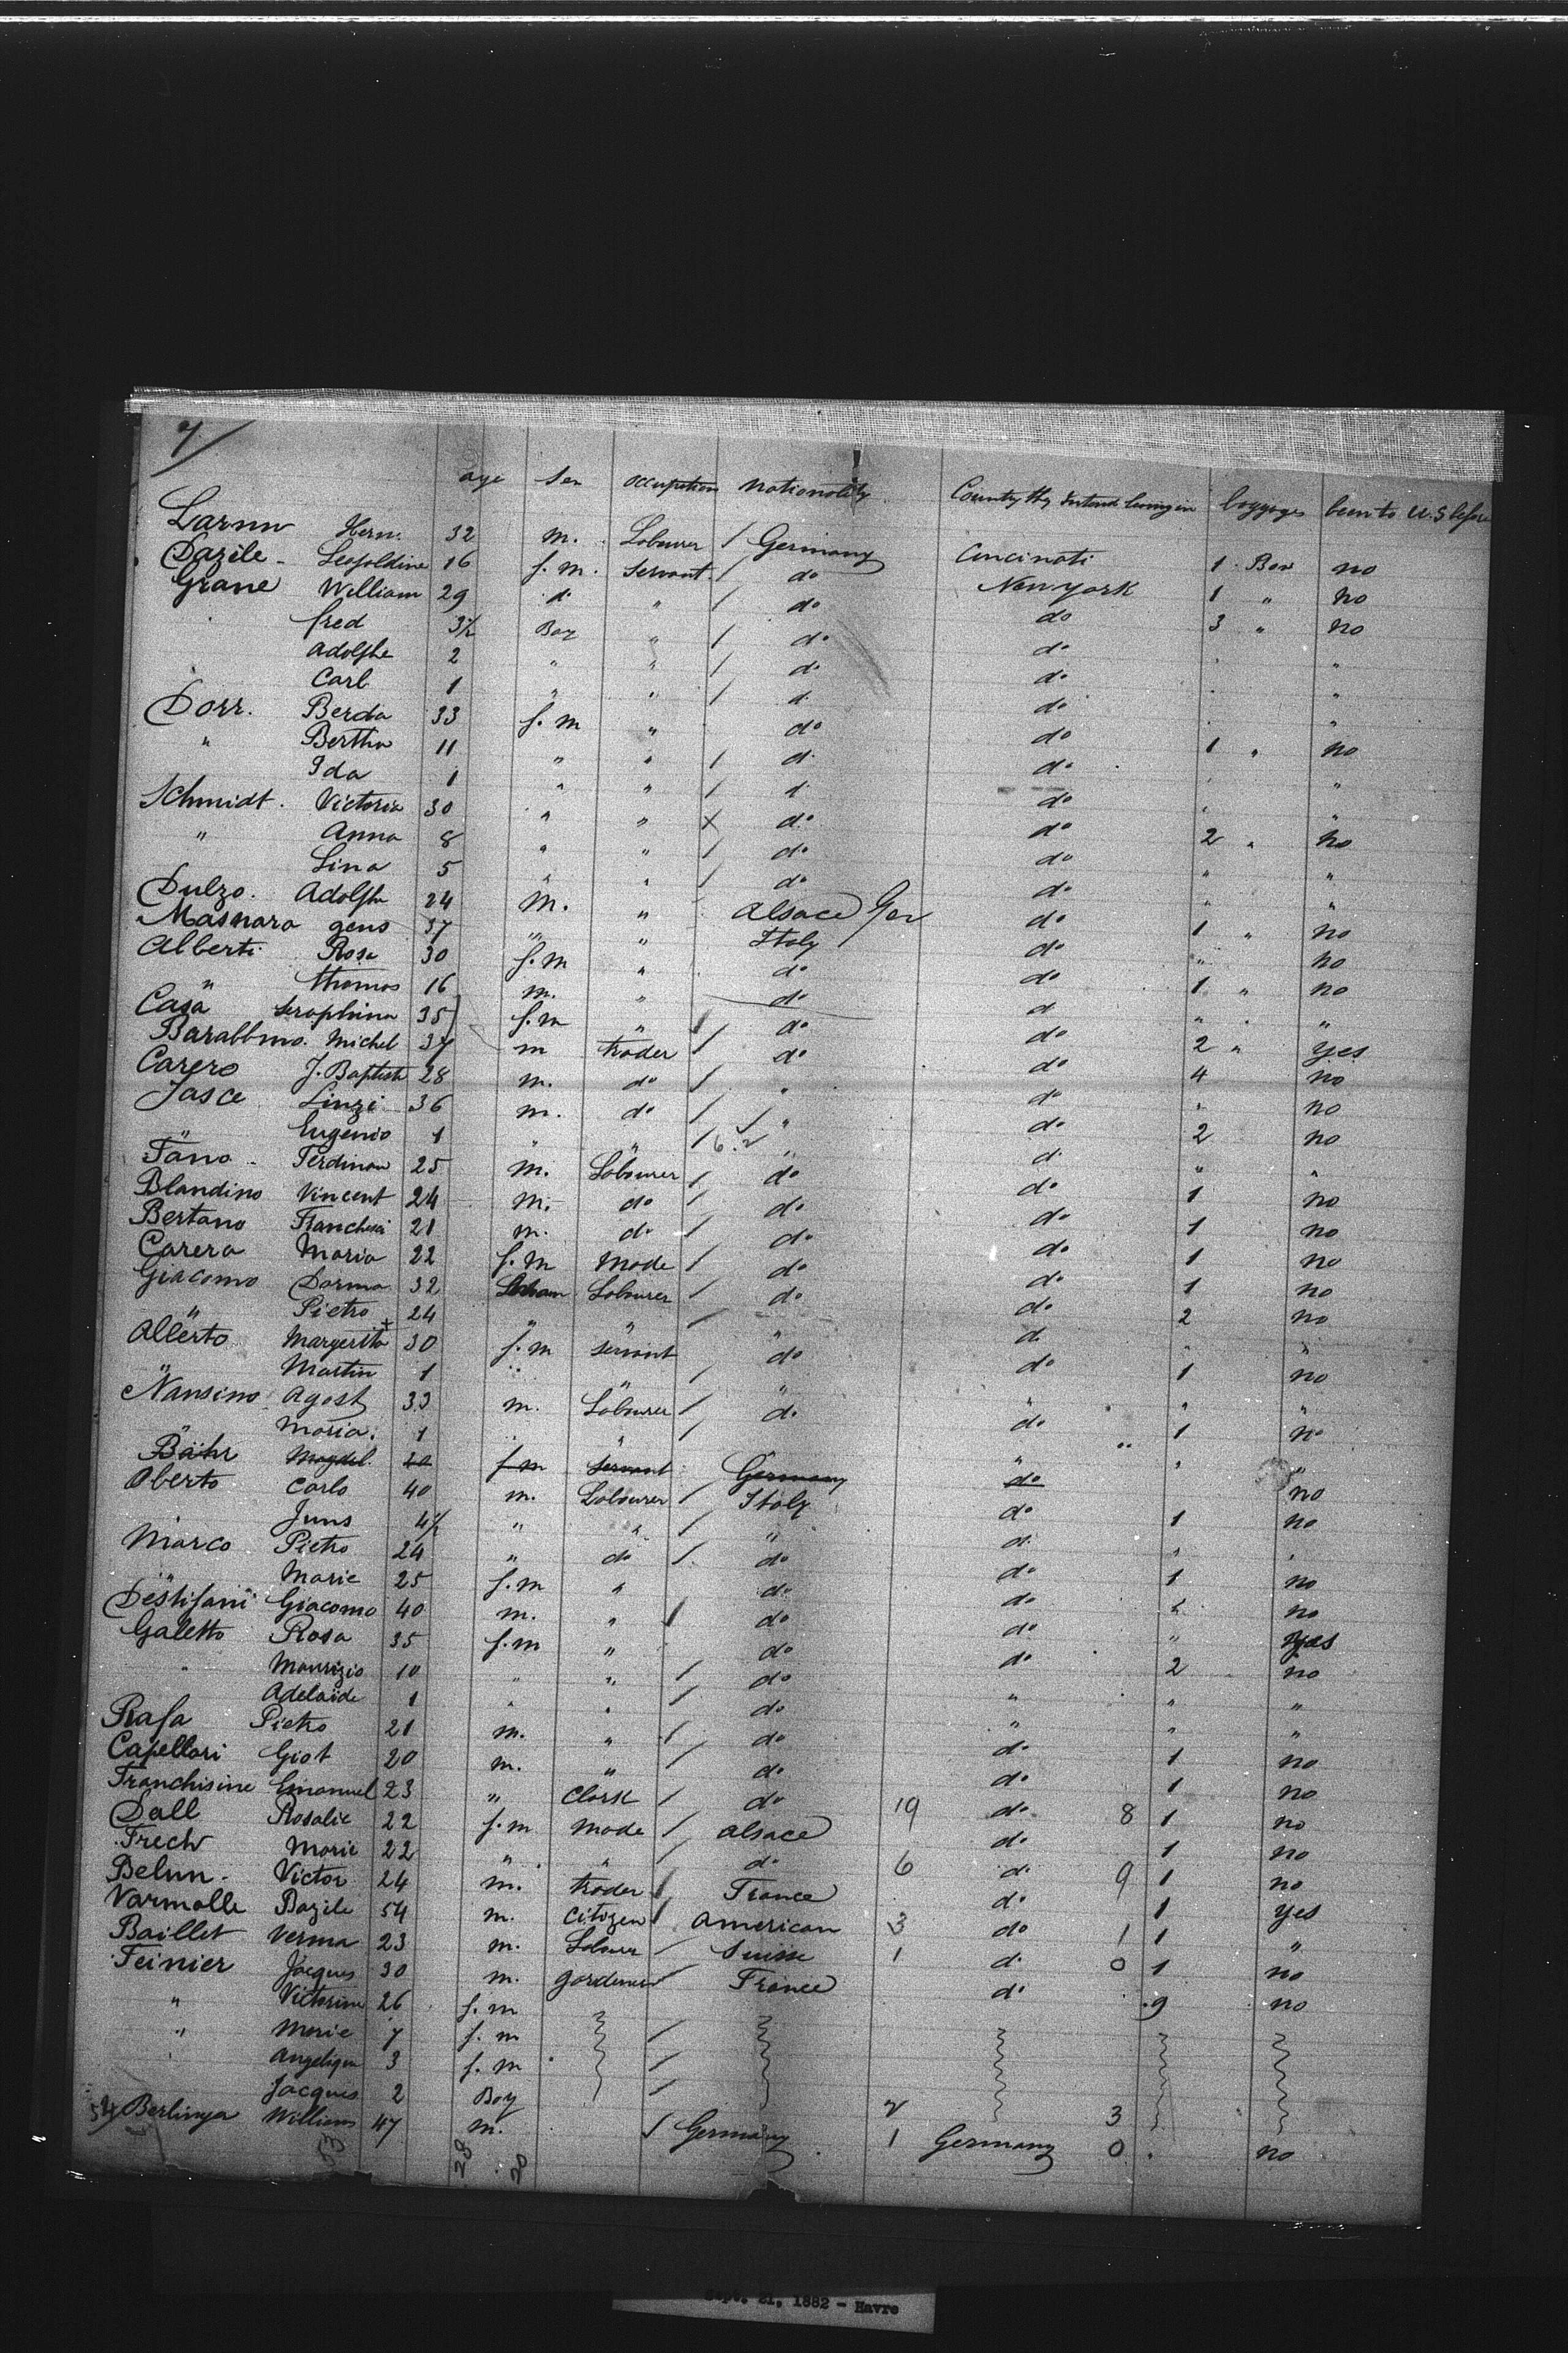 7/
age Sex occupation nationality Country they intend living in baggages been to U.S before
Larun Herm. 32 m. Labourer / Germany Cincinati 1 Box no
Dazile - Leopoldine 16 f. m. Servant / do New york 1 " no
Grane William 29 d. " / do do 3 " no
fred 3½ Boy " / do do "
Adolphe 2 " " / do do "
Carl 1 " " / d. do "
Dorr. Berda 33 f. m " do do 1 " no
" Bertha 11 " " / d. do "
Ida 1 " " / d. do "
Schmidt. Victoria 30 " " X do do 2 " no
" Anna 8 " " / do do " "
Lina 5 " " / do do " "
Dulzo. Adolphe 24 m. " Alsace Ger do 1 " no
Masnara gens 37 " " Italy do " no
Alberti Rosa 30 f. m " do do 1 " no
" thomas 16 m. " do d " "
Casa Seraphina 35 f. m " / do do 2 " yes
Barabbino. Michel 37 m trader / do do 4 no
Carero J. Baptiste 28 m. do / " do " no
Jasce Linzi 36 m. do / " do 2 no
" Eugenio 1 " " / 6.2 " d. " "
Fano - Ferdinan 25 m. Labourer / do do 1 no
Blandino Vincent 24 m. do / do do 1 no
Bertano Francheri 21 m. do / do do 1 no
Carera Maria 22 f. m Made / do do 1 no
Giacomo Darma 32 Labourer / do do 2 no
" Pietro 24 " " / " d. " "
Alberto Margerita 30 f. m Servant do do 1 no
" Martin 1 " " / " " " "
Nansino Agost 33 m. Labourer / do do 1 no
" Maria. 1 " " / " " " "
Bähr Magdel. 20 f. m Servant Germany do no
Oberto Carlo 40 m. Labourer / Italy do 1 no
Juns 4½ " " / " d. " "
Marco Pietro 24 " do / do do 1 no
" Marie 25 f. m " do do " no
Destifani Giacomo 40 m. " / do do " yes
Galetto Rosa 35 f. m " do do 2 no
" Maurizio 10 " " / do " " "
Adelaide 1 " " / do " " "
Rafa Pietro 21 m. " / do do 1 no
Capellari Giot 20 m. " / do do 1 no
Franchisine Emanuel 23 " Clark / do 19 do 8 1 no
Dall Rosalie 22 f. m Made / Alsace do 1 no
Frech Marie 22 " " / do 6 d. 9 1 no
Belun. Victor 24 m. trader / France do 1 yes
Varmolle Bazile 54 m. Citizen / American 3 do 1 1 "
Baillet Verma 23 m. Labourer / Suisse 1 d. 0 1 no
Feinier Jacques 30 m. gardener / France do 9 no
" Victorine 26 f. m
" Marie 7 f. m /
" Angelique 3 f. m /
Jacques 2 Boy / 2 3
54/ Berlinga William 47 m. / Germany 1 Germany 0 no
53 28 20
Sept. 21, 1882 - Havre